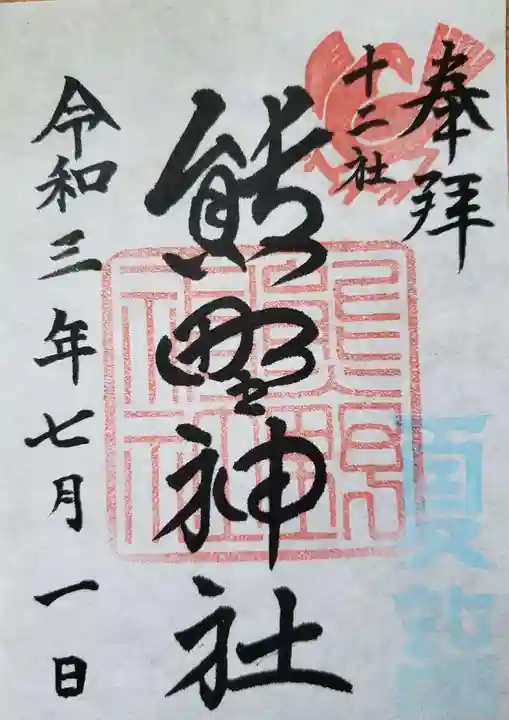 奉拝
十二社
熊野神社
令和三年七月一日
夏詣